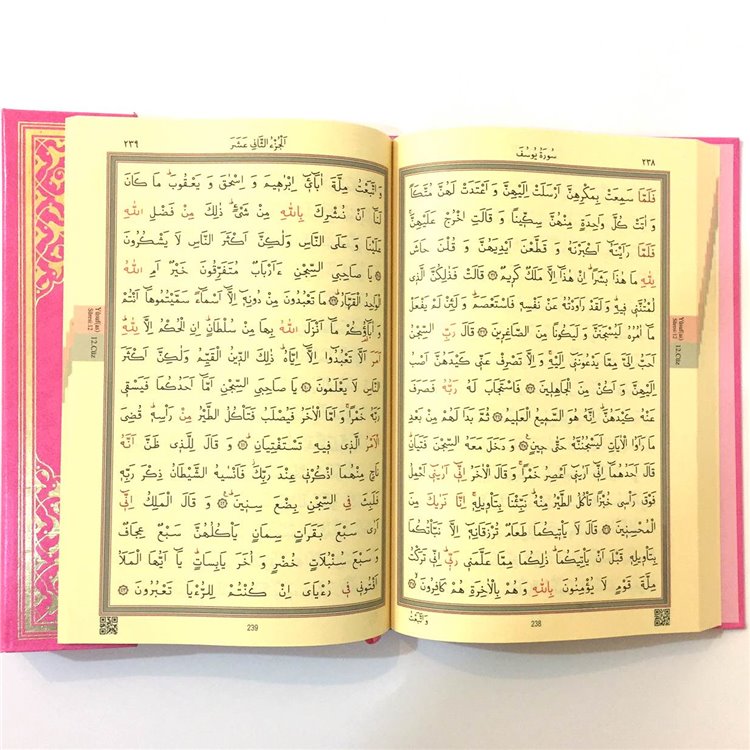 ٢٣٨
سُورَةُ يُوسُفَ
فَلَمَّا سَمِعَتْ بِمَكْرِهِنَّ اَرْسَلَتْ اِلَيْهِنَّ وَ اَعْتَدَتْ لَهُنَّ مُتَّكَـًٔا
وَ اٰتَتْ كُلَّ وَاحِدَةٍ مِنْهُنَّ سِكّ۪ينًا وَ قَالَتِ اخْرُجْ عَلَيْهِنَّۚ
فَلَمَّا رَاَيْنَهُٓ اَكْبَرْنَهُ وَ قَطَّعْنَ اَيْدِيَهُنَّ وَ قُلْنَ حَاشَ
لِلّٰهِ مَا هٰذَا بَشَرًاۜ اِنْ هٰذَٓا اِلَّا مَلَكٌ كَر۪يمٌ ۝ قَالَتْ فَذٰلِكُنَّ الَّذ۪ي
لُمْتُنَّن۪ي ف۪يهِۜ وَ لَقَدْ رَاوَدْتُهُ عَنْ نَفْسِه۪ فَاسْتَعْصَمَۜ وَ لَئِنْ لَمْ يَفْعَلْ
مَٓا اٰمُرُهُ لَيُسْجَنَنَّ وَ لَيَكُونًا مِنَ الصَّاغِر۪ينَ ۝ قَالَ رَبِّ السِّجْنُ
اَحَبُّ اِلَيَّ مِمَّا يَدْعُونَن۪ٓي اِلَيْهِۚ وَ اِلَّا تَصْرِفْ عَنّ۪ي كَيْدَهُنَّ اَصْبُ
اِلَيْهِنَّ وَ اَكُنْ مِنَ الْجَاهِل۪ينَ ۝ فَاسْتَجَابَ لَهُ رَبُّهُ فَصَرَفَ
عَنْهُ كَيْدَهُنَّۜ اِنَّهُ هُوَ السَّم۪يعُ الْعَل۪يمُ ۝ ثُمَّ بَدَا لَهُمْ مِنْ بَعْدِ
مَا رَاَوُا الْاٰيَاتِ لَيَسْجُنُنَّهُ حَتّٰى ح۪ينٍ۟ ۝ وَ دَخَلَ مَعَهُ السِّجْنَ فَتَيَانِۜ
قَالَ اَحَدُهُمَٓا اِنّ۪ٓي اَرٰين۪ٓي اَعْصِرُ خَمْرًاۚ وَ قَالَ الْاٰخَرُ اِنّ۪ٓي اَرٰين۪ٓي اَحْمِلُ
فَوْقَ رَاْس۪ي خُبْزًا تَاْكُلُ الطَّيْرُ مِنْهُۜ نَبِّئْنَا بِتَاْو۪يلِه۪ۚ اِنَّا نَرٰيكَ مِنَ
الْمُحْسِن۪ينَ ۝ قَالَ لَا يَاْت۪يكُمَا طَعَامٌ تُرْزَقَانِه۪ٓ اِلَّا نَبَّاْتُكُمَا
بِتَاْو۪يلِه۪ قَبْلَ اَنْ يَاْتِيَكُمَاۜ ذٰلِكُمَا مِمَّا عَلَّمَن۪ي رَبّ۪يۜ اِنّ۪ي تَرَكْتُ
مِلَّةَ قَوْمٍ لَا يُؤْمِنُونَ بِاللّٰهِ وَ هُمْ بِالْاٰخِرَةِ هُمْ كَافِرُونَ ۝
وَاتَّبَعْتُ
238
Yûsuf(as)
Sûresi:12
12.Cüz
اَلْجُزْءُ الثَّان۪ي عَشَرَ
٢٣٩
وَ اتَّبَعْتُ مِلَّةَ اٰبَٓاء۪ٓي اِبْرٰه۪يمَ وَ اِسْحٰقَ وَ يَعْقُوبَۜ مَا كَانَ
لَنَٓا اَنْ نُشْرِكَ بِاللّٰهِ مِنْ شَيْءٍۜ ذٰلِكَ مِنْ فَضْلِ اللّٰهِ
عَلَيْنَا وَ عَلَى النَّاسِ وَلٰكِنَّ اَكْثَرَ النَّاسِ لَا يَشْكُرُونَ
۝ يَا صَاحِبَيِ السِّجْنِ ءَاَرْبَابٌ مُتَفَرِّقُونَ خَيْرٌ اَمِ اللّٰهُ
الْوَاحِدُ الْقَهَّارُۜ ۝ مَا تَعْبُدُونَ مِنْ دُونِه۪ٓ اِلَّٓا اَسْمَٓاءً سَمَّيْتُمُوهَٓا اَنْتُمْ
وَ اٰبَٓاؤُ۬كُمْ مَٓا اَنْزَلَ اللّٰهُ بِهَا مِنْ سُلْطَانٍۜ اِنِ الْحُكْمُ اِلَّا لِلّٰهِۜ
اَمَرَ اَلَّا تَعْبُدُٓوا اِلَّٓا اِيَّاهُۜ ذٰلِكَ الدّ۪ينُ الْقَيِّمُ وَلٰكِنَّ اَكْثَرَ
النَّاسِ لَا يَعْلَمُونَ ۝ يَا صَاحِبَيِ السِّجْنِ اَمَّٓا اَحَدُكُمَا فَيَسْق۪ي
رَبَّهُ خَمْرًاۚ وَ اَمَّا الْاٰخَرُ فَيُصْلَبُ فَتَاْكُلُ الطَّيْرُ مِنْ رَاْسِه۪ۜ قُضِيَ
الْاَمْرُ الَّذ۪ي ف۪يهِ تَسْتَفْتِيَانِۜ ۝ وَ قَالَ لِلَّذ۪ي ظَنَّ اَنَّهُ
نَاجٍ مِنْهُمَا اذْكُرْن۪ي عِنْدَ رَبِّكَۘ فَاَنْسٰيهُ الشَّيْطَانُ ذِكْرَ رَبِّه۪
فَلَبِثَ فِي السِّجْنِ بِضْعَ سِن۪ينَ۟ ۝ وَ قَالَ الْمَلِكُ اِنّ۪ٓي
اَرٰى سَبْعَ بَقَرَاتٍ سِمَانٍ يَاْكُلُهُنَّ سَبْعٌ عِجَافٌ
وَ سَبْعَ سُنْبُلَاتٍ خُضْرٍ وَ اُخَرَ يَابِسَاتٍۜ يَٓا اَيُّهَا الْمَلَاُ
اَفْتُون۪ي ف۪ي رُءْيَايَ اِنْ كُنْتُمْ لِلرُّءْيَا تَعْبُرُونَ ۝
239
Yûsuf(as)
Sûresi:12
12.Cüz